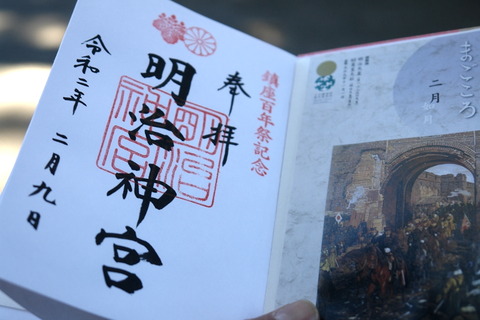 まごころ
二月
鎮座百年祭記念
奉拝
明治神宮
明治神宮
令和二年 二月九日